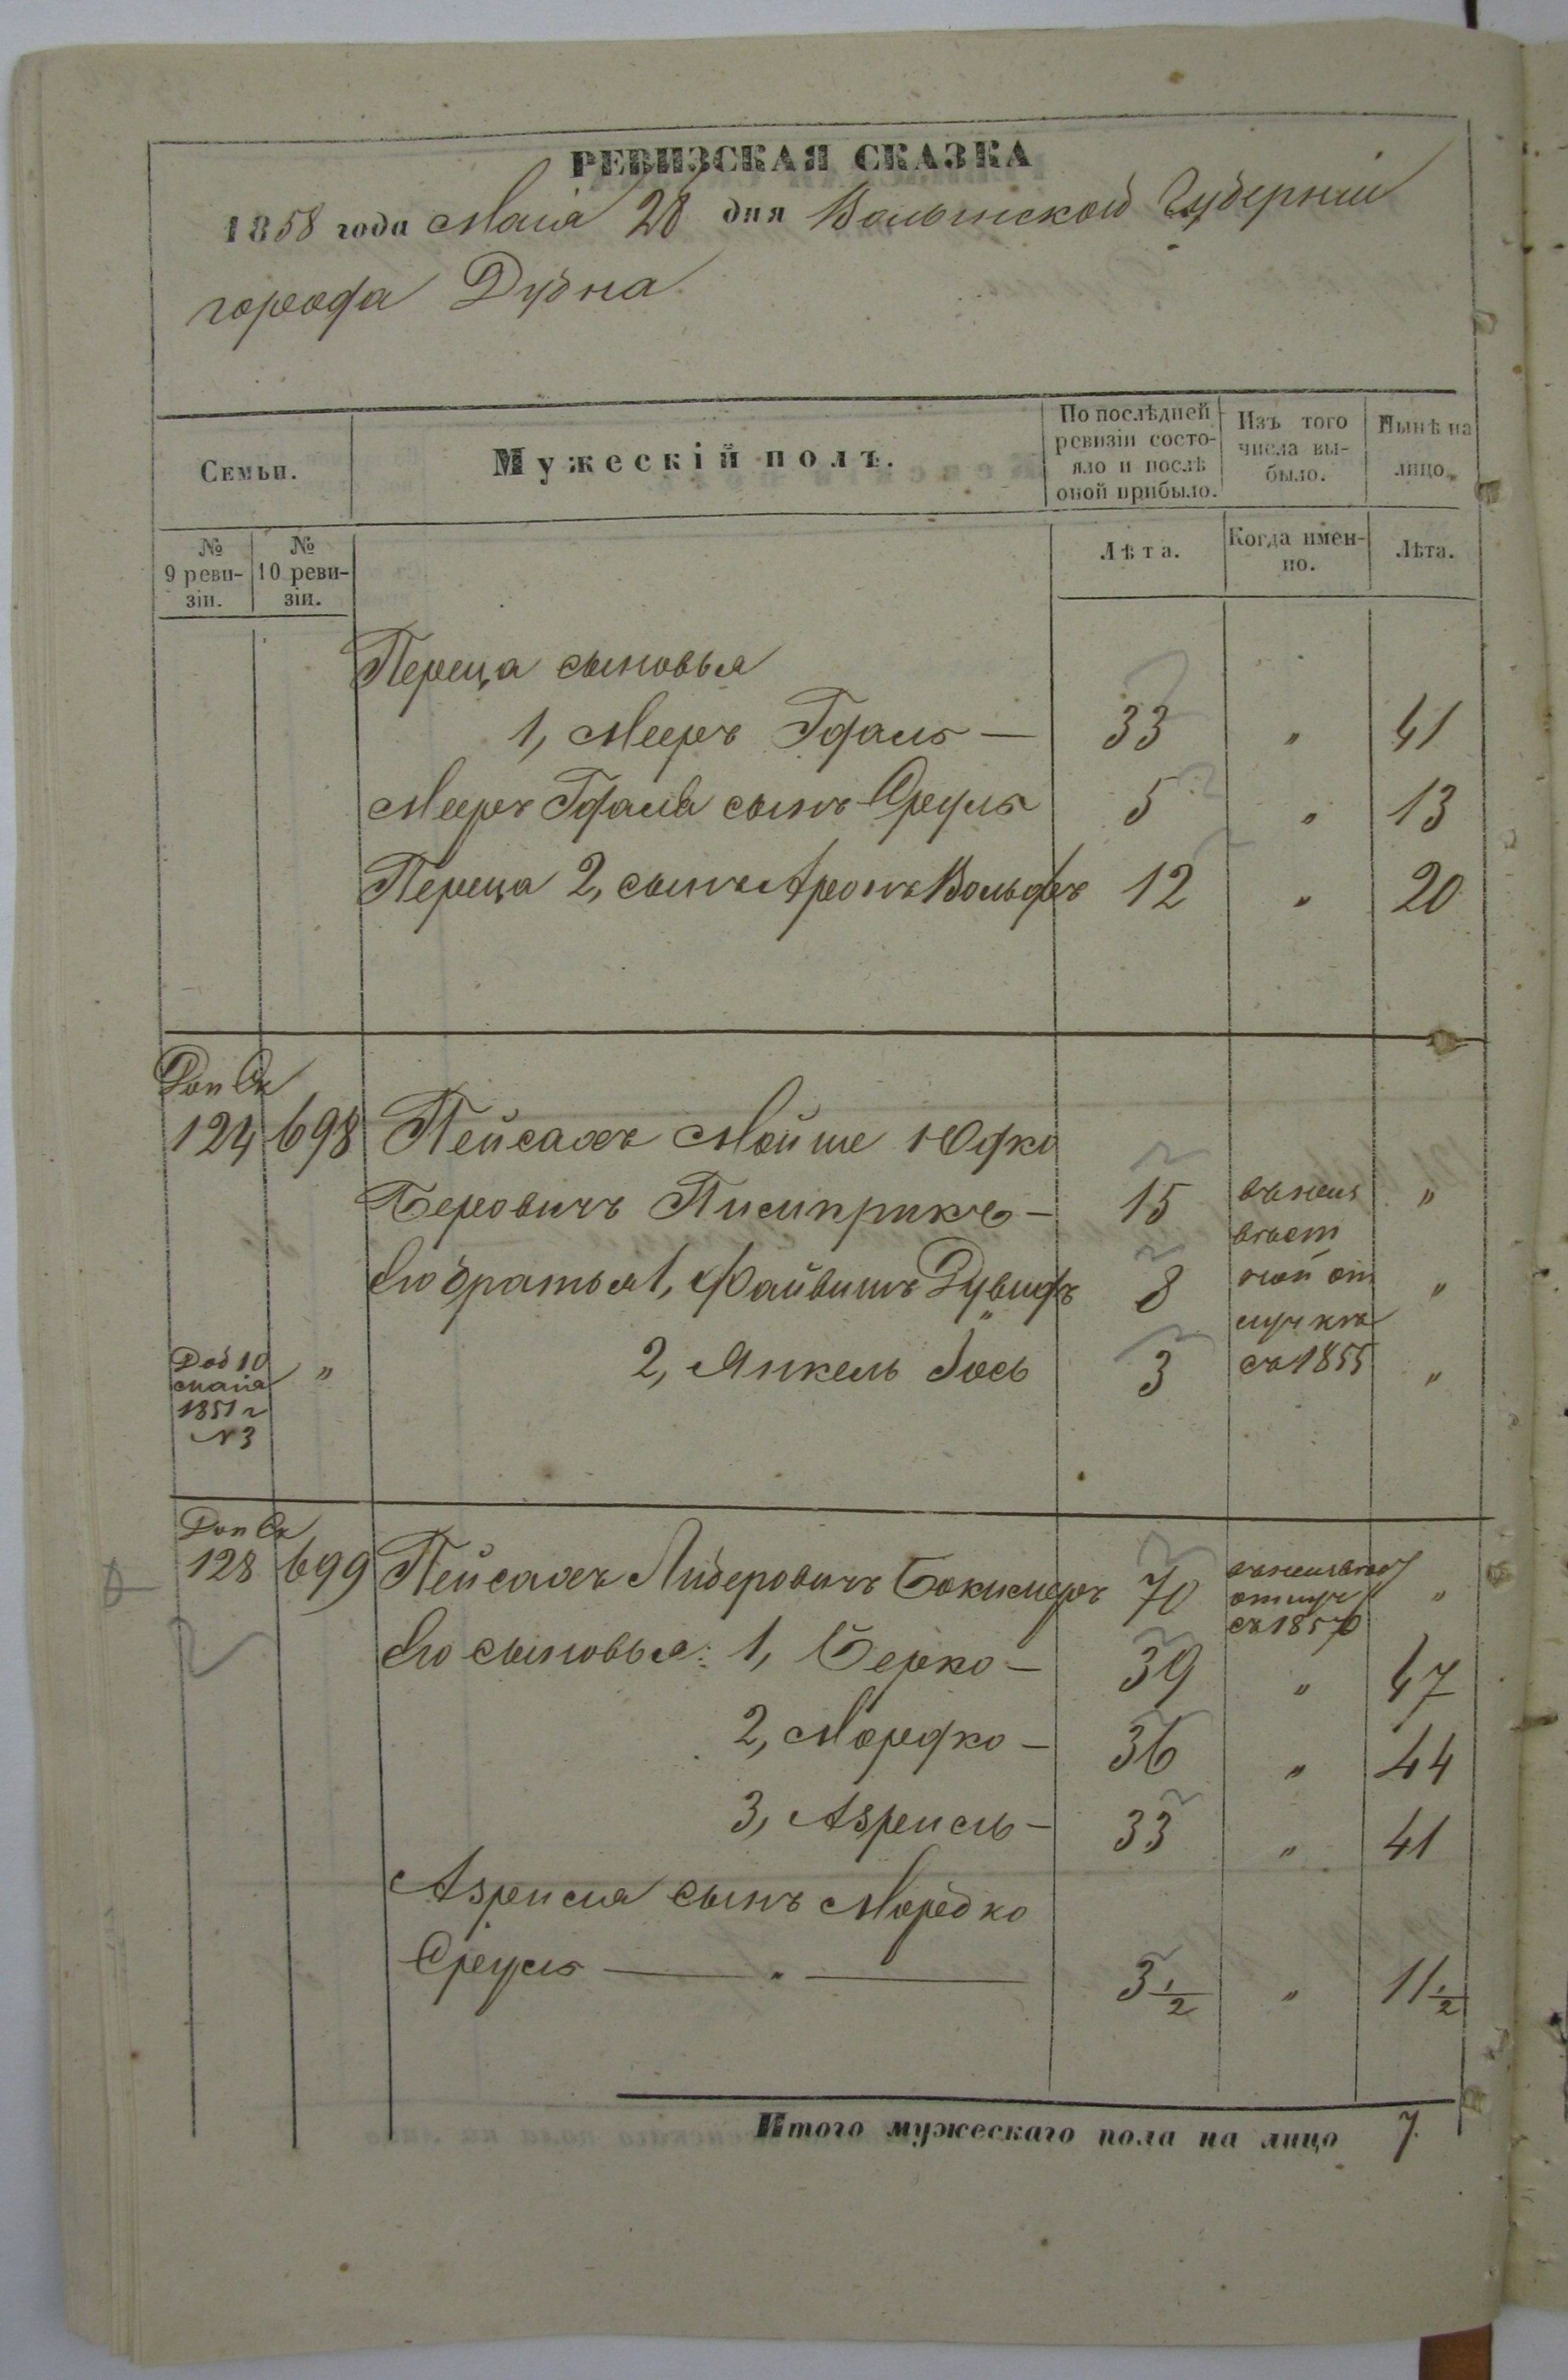 РЕВИЗСКАЯ СКАЗКА
1858 года Маія 28 дня Волынской Губерніи
города Дубна
Семьи.
Мужескій полъ.
По послѣдней ревизіи состояло и послѣ оной прибыло.
Изъ того числа выбыло.
Нынѣ на лицо.
№ 9 ревизіи.
№ 10 ревизіи.
Лѣта.
Когда именно.
Лѣта.
Переца сыновья
1, Мееръ Гдаль — 33 " 41
Мееръ Гдаля сынъ Сруль 5 " 13
Переца 2, сынъ Аронъ Вольфъ 12 " 20
Доп Ск
124 698 Пейсахъ Мойше Юдко
Беровичъ — 15 "
Его братья 1, Файвишъ Дувидъ 8 "
2, Янкель Іось 3 съ 1855 "
Доб 10
мая
1851 г
№ 3
"
Доп Ск
128 699 Пейсахъ Либеровичъ 70 "
отлуч
съ 1857
Его сыновья: 1, Берко — 39 " 47
2, Мордко — 36 " 44
3, Азриель — 33 " 41
Азриеля сынъ Мордко
Сруль — " — 3 1/2 " 11 1/2
Итого мужескаго пола на лицо 7.